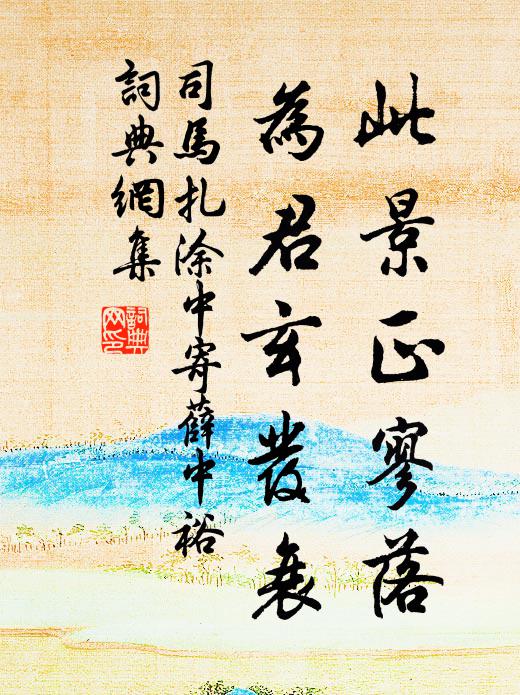 此景正寥落
為君玄發衰
司馬扎滁中寄薛中裕
詞典網集
詞典
网印